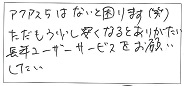 アクアスらはないと困ります(笑)
ただもう少し安くなるとありがたい
長年ユーザーサービスをお願い
したい